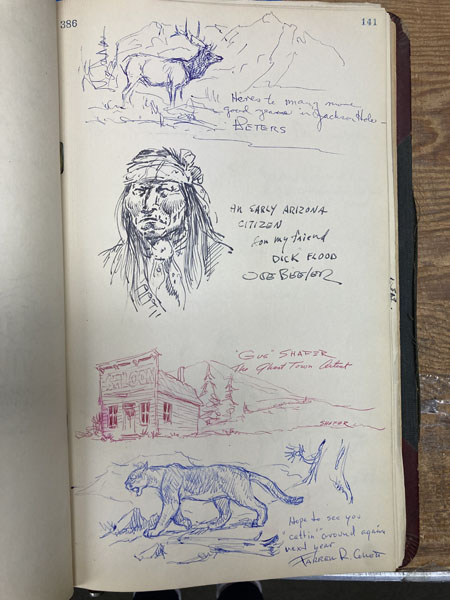 386
141
Heres to many more
good years in Jackson Hole –
PETERS
AN EARLY ARIZONA
CITIZEN
for my friend
DICK FLOOD
JOE BEELER
SALOON
"GUS" SHAFER
The Ghost Town Artist
SHAFER
Hope to see you
"cattin" around again
next year